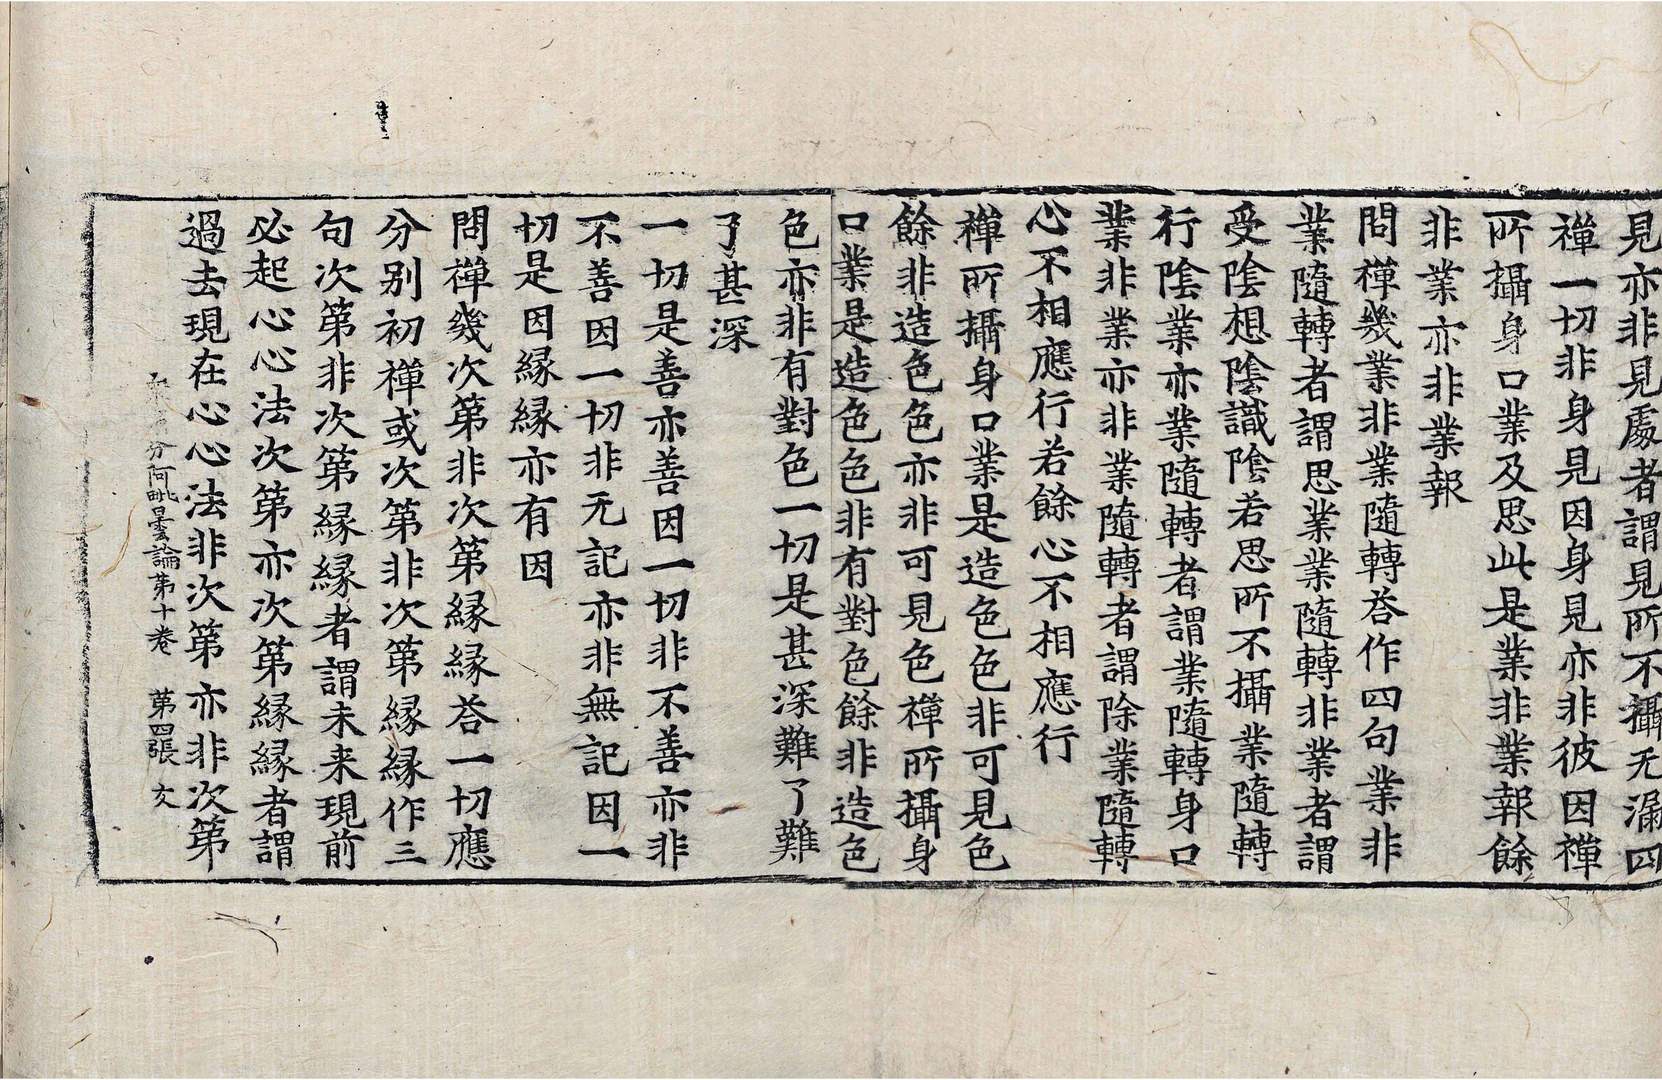 見亦非見處者謂見所不攝无漏四
禪一切非身見因身見亦非彼因禪
所攝身口業及思此是業非業報餘
非業亦非業報
問禪幾業非業隨轉荅作四句業非
業隨轉者謂思業業隨轉非業者謂
受陰想陰識陰若思所不攝業隨轉
行陰業亦業隨轉者謂業隨轉身口
業非業亦非業隨轉者謂除業隨轉
心不相應行若餘心不相應行
禪所攝身口業是造色色非可見色
餘非造色色亦非可見色禪所攝身
口業是造色色非有對色餘非造色
色亦非有對色一切是甚深難了難
了甚深
一切是善亦善因一切非不善亦非
不善因一切非无記亦非無記因一
切是因緣緣亦有因
問禪幾次第非次第緣緣荅一切應
分别初禪或次第非次第緣緣作三
句次第非次第緣緣者謂未来現前
必起心心法次第亦次第緣緣者謂
過去現在心心法非次第亦非次第
分阿毗曇論第十卷 第四張